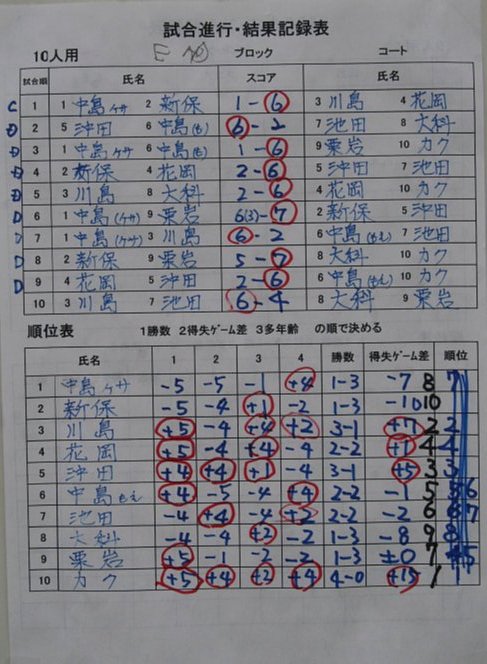 試合進行・結果記録表
10人用 ブロック コート
試合順 氏名 スコア 氏名
C 1 1 中島ケサ 2 新保 1 - 6 3 川島 4 花岡
D 2 5 沖田 6 中島(も) 6 - 2 7 池田 8 大科
D 3 1 中島ケサ 6 中島(も) 1 - 6 9 栗岩 10 カク
D 4 2 新保 4 花岡 2 - 6 5 沖田 7 池田
D 5 3 川島 8 大科 2 - 6 4 花岡 10 カク
D 6 1 中島(ケサ) 9 栗岩 6(3) - 7 2 新保 5 沖田
D 7 1 中島(ケサ) 3 川島 6 - 2 6 中島(もえ) 7 池田
D 8 2 新保 9 栗岩 5 - 7 8 大科 10 カク
D 9 4 花岡 5 沖田 2 - 6 6 中島(もえ) 10 カク
10 3 川島 7 池田 6 - 4 8 大科 9 栗岩
順位表 1勝数 2得失ゲーム差 3多年齢 の順で決める
氏名 1 2 3 4 勝数 得失ゲーム差 順位
1 中島ケサ -5 -5 -1 +4 1-3 -7 8 7
2 新保 -5 -4 +1 -2 1-3 -10 10
3 川島 +5 -4 +4 +2 3-1 +7 2 2
4 花岡 +5 -4 +4 -4 2-2 +1 4 4
5 沖田 +4 +2 +1 -4 3-1 +5 3 3
6 中島もえ +4 -5 -4 +4 2-2 -1 5 6
7 池田 -4 +2 -4 +2 2-2 -2 6 7
8 大科 -4 -4 +2 -2 1-3 -8 9 8
9 栗岩 +5 -1 -2 -2 1-3 ±0 7 5
10 カク +5 +4 +2 +4 4-0 +15 1